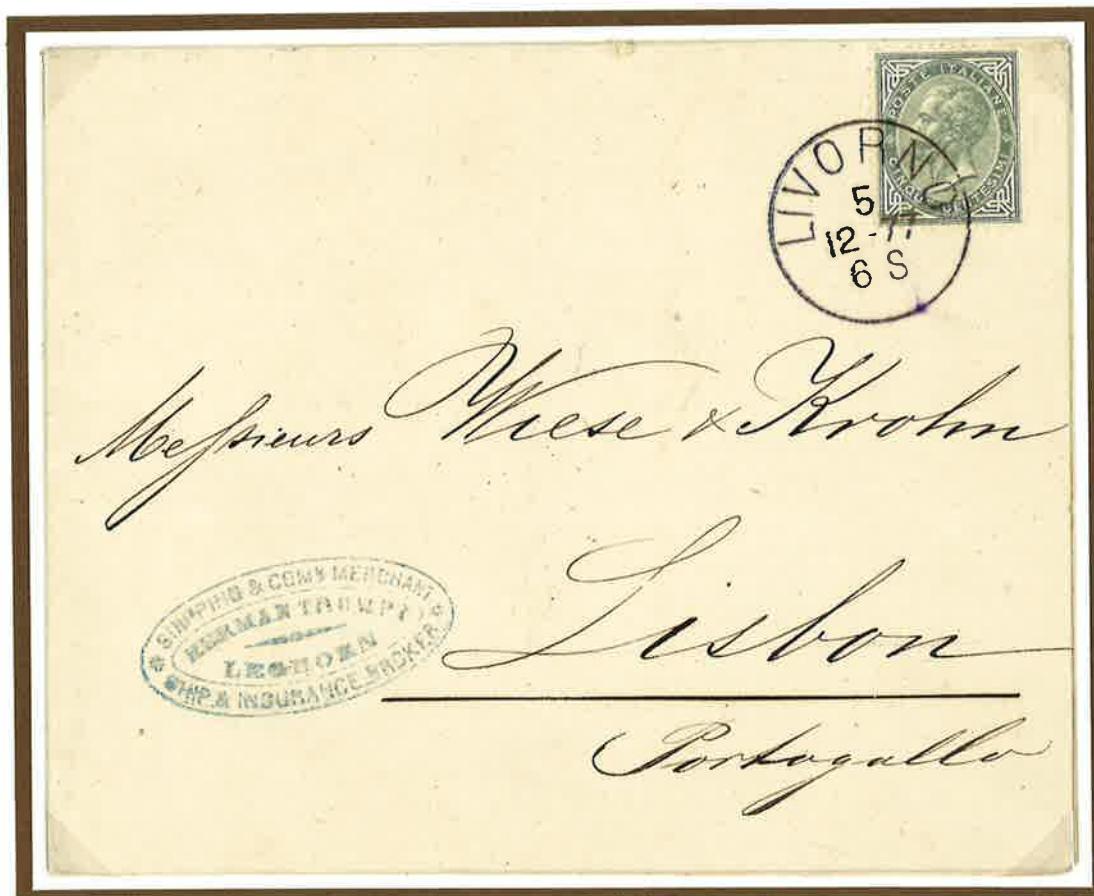 POSTE ITALIANE
CINQUE CENTESIMI
LIVORNO
5
12 - 77
6 S
Messieurs Wiese & Krohn
Lisbon
Portogallo
SHIPPING & COMN MERCHANT
HERMAN TRUMPY
LEGHORN
SHIP & INSURANCE BROKER